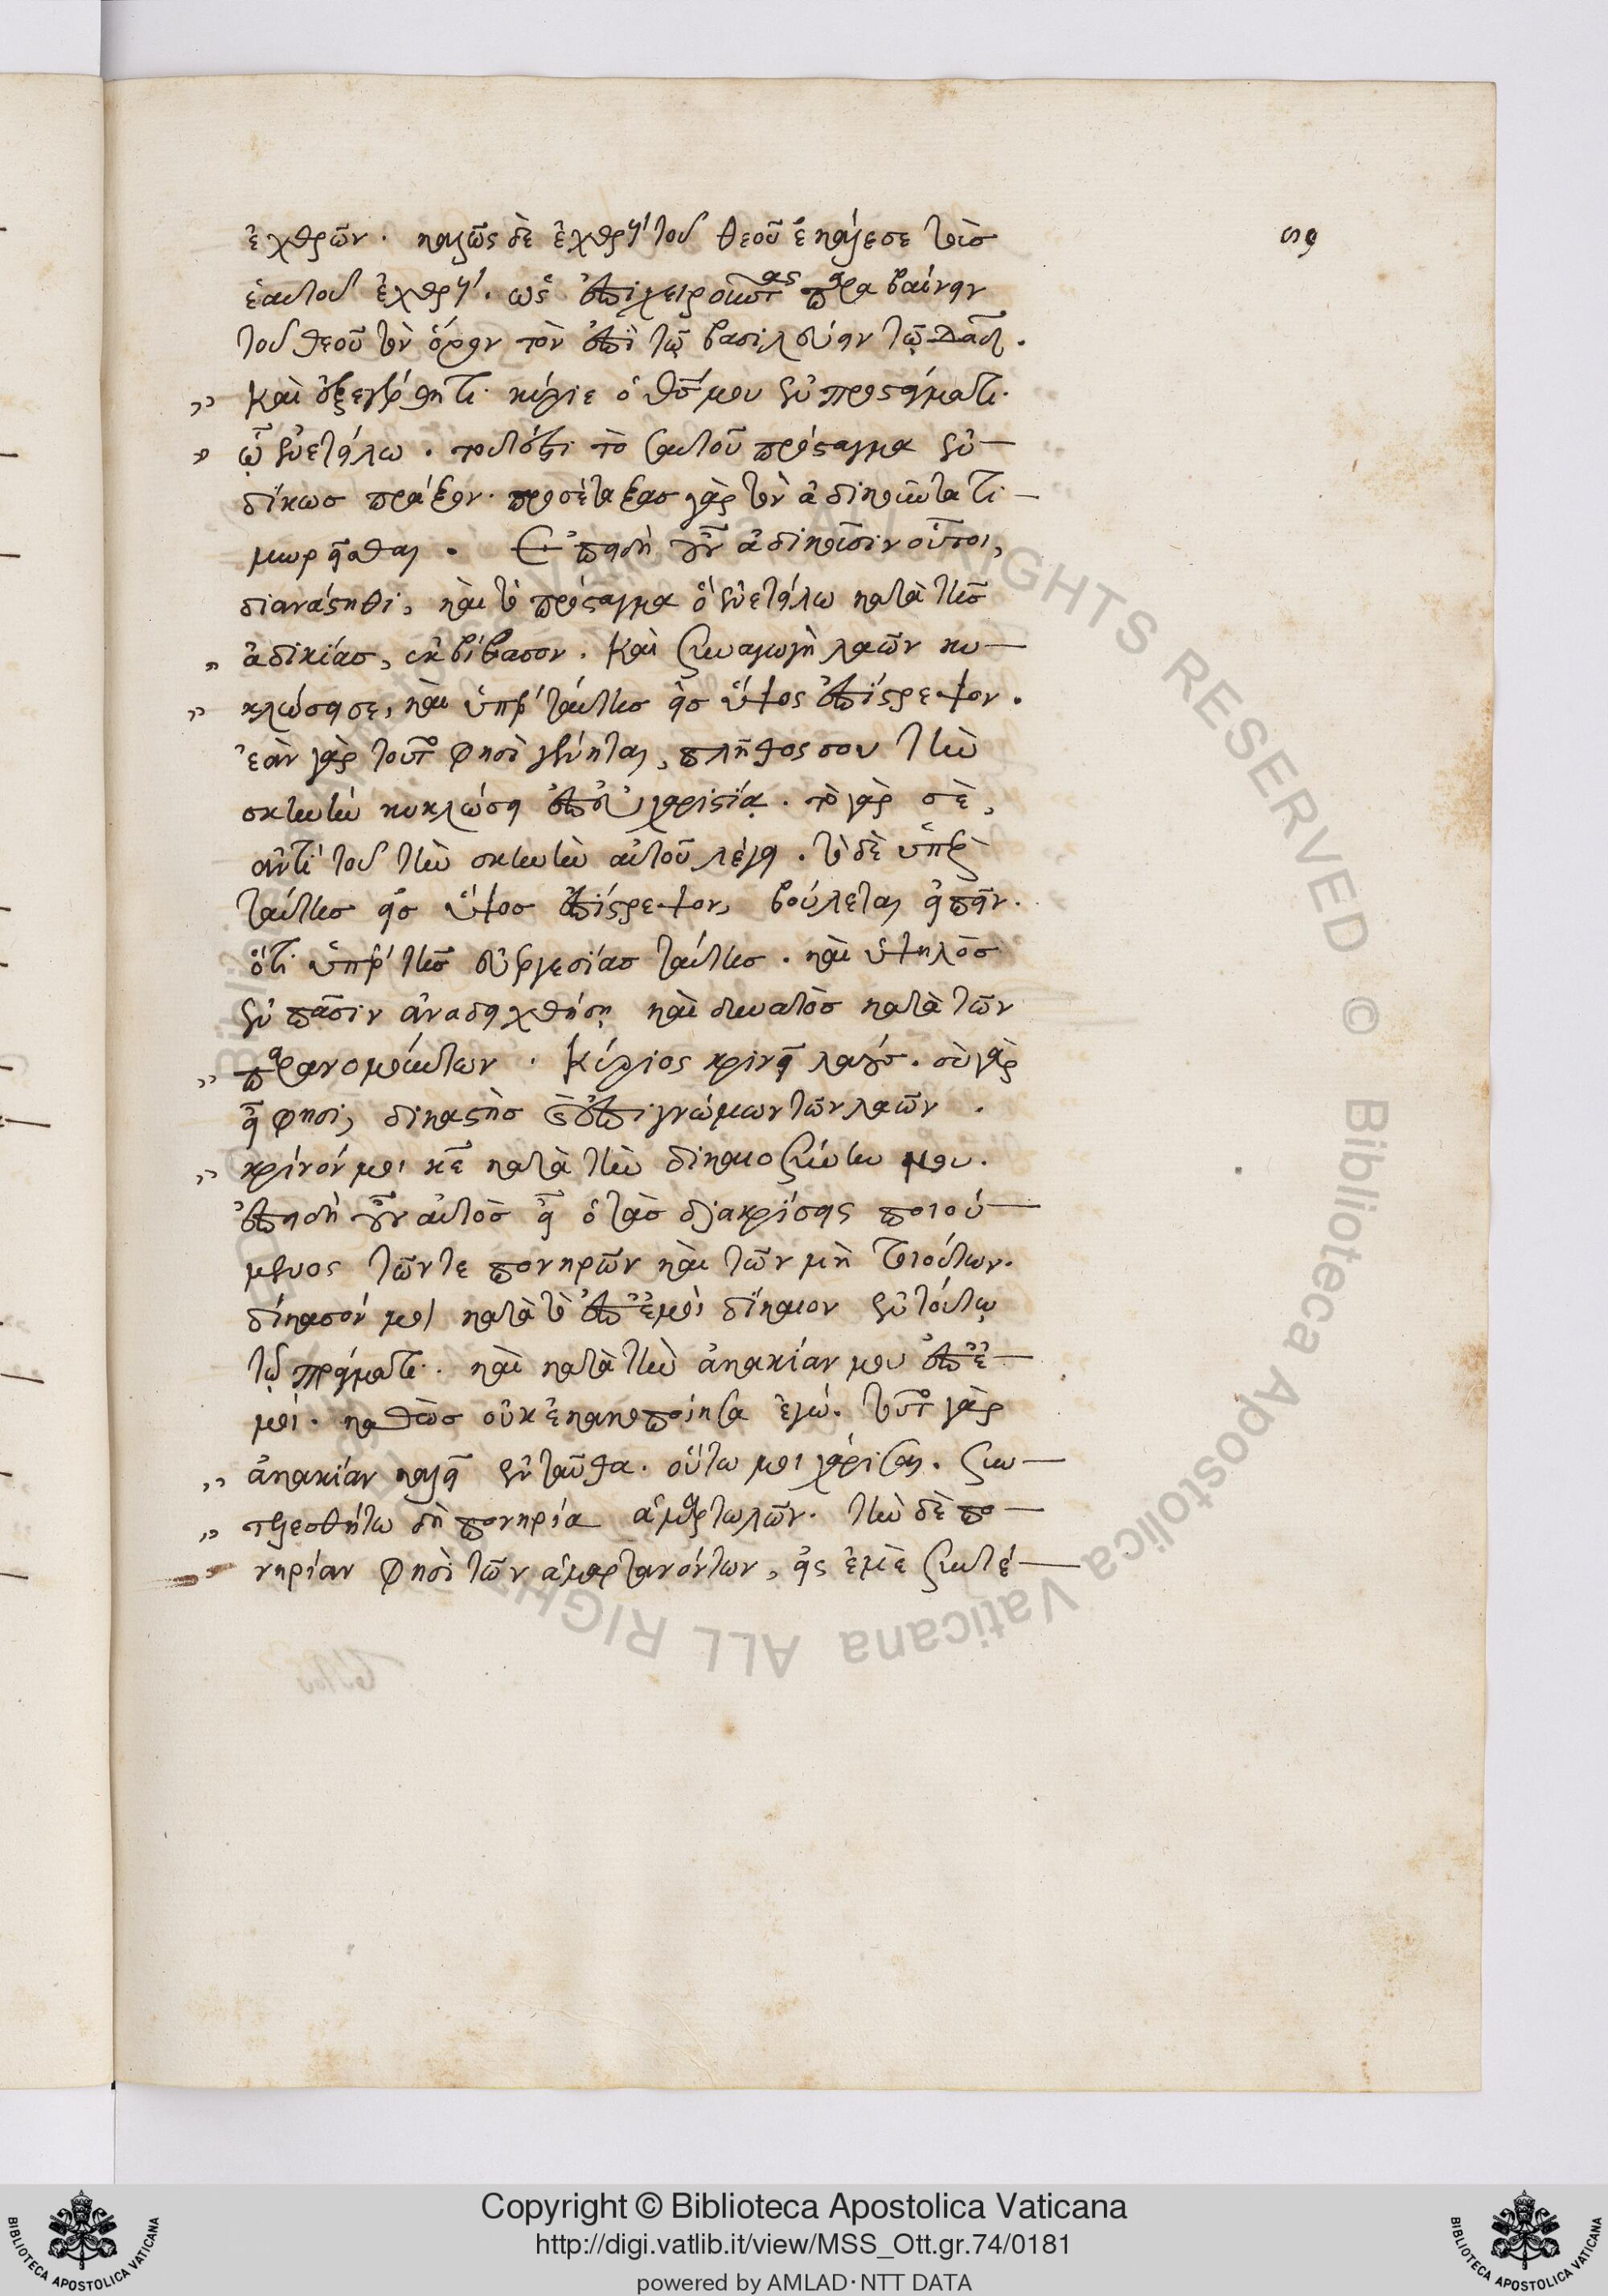 ἐχθρῶν. καλῶς δὲ ἐχθροὺς τοῦ θεοῦ ἐκάλεσε τοὺς
ἑαυτοῦ ἐχθρούς. ὡς ἐπιχειροῦντας παραβαίνειν
τοῦ θεοῦ τὸν ὅρον τὸν ἐπὶ τῷ βασιλεύειν τῷ δαδ.
" Καὶ ἐξεγέρθητι κύριε ὁ θσ μου ἐν προστάγματι
" ᾧ ἐνετείλω. τουτέστι τὸ σαυτοῦ πρόσταγμα ἐν-
δίκως πρᾶξον. προσέταξας γὰρ τὸν ἀδικοῦντα τι-
μωρεῖσθαι. Ἐπειδὴ οὖν ἀδικοῦσιν οὗτοι,
διανάστηθι, καὶ τὸ πρόσταγμα ὃ ἐνετείλω κατὰ τῆς
" ἀδικίας, ἐκβίβασον. Καὶ συναγωγὴ λαῶν κυ-
" κλώσει σε, καὶ ὑπὲρ ταύτης εἰς ὕψος ἐπίστρεψον.
ἐὰν γὰρ τοῦτο φησὶ γένηται, πλῆθός σου τὴν
σκηνὴν κυκλώσει ἐπ' εὐχαριστίᾳ. τὸ γὰρ σὲ,
ἀντὶ τοῦ τὴν σκηνὴν αὐτοῦ λέγει. τὸ δὲ ὑπὲρ
ταύτης εἰς ὕψος ἐπίστρεψον, βούλεται εἰπεῖν.
ὅτι ὑπὲρ τῆς εὐεργεσίας ταύτης. καὶ ὑψηλὸς
ἐν πᾶσιν ἀναδειχθήσῃ καὶ δυνατὸς κατὰ τῶν
" παρανομούντων. Κύριος κρινεῖ λαούς. σὺ γὰρ
εἶ φησι, δικαστὴς καὶ ἐπιγνώμων τῶν λαῶν.
" κρῖνόν μοι κε κατὰ τὴν δικαιοσύνην μου.
ἐπειδὴ οὖν αὐτὸς εἶ ὁ τὰς διακρίσεις ποιού-
μενος τῶν τε πονηρῶν καὶ τῶν μὴ τοιούτων.
δίκασόν μοι κατὰ τὸ ἐπ' ἐμοὶ δίκαιον ἐν τούτῳ
τῷ πράγματι. καὶ κατὰ τὴν ἀκακίαν μου ἐπ' ἐ-
μοί. καθὼς οὐκ ἐκακοποίησα ἐγώ. τοῦτο γὰρ
" ἀκακίαν καλεῖ ἐνταῦθα. οὕτω μοι χάρισαι. συν-
" τελεσθήτω δὴ πονηρία ἁμαρτωλῶν. τὴν δὲ πο-
νηρίαν φησὶ τῶν ἁμαρτανόντων, εἰς ἐμὲ συντέ-
Copyright © Biblioteca Apostolica Vaticana
http://digi.vatlib.it/view/MSS_Ott.gr.74/0181
powered by AMLAD·NTT DATA